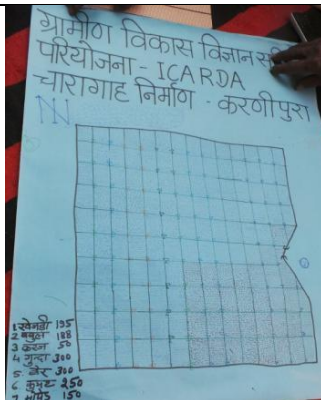 ग्रामीण विकास विज्ञान
परियोजना - ICARDA
चारागाह निर्माण - करणीपुरा
N
1 खेजड़ी 195
2 बबूल 188
3 करंज 50
4 गुन्दा 300
5. बेर 300
6 कुमट 250
7 150